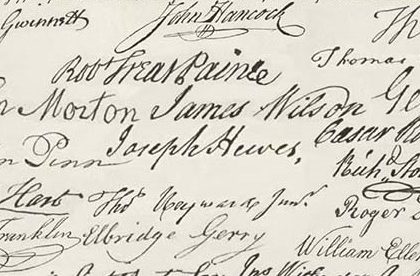 Gwinnett John Hancock
Robt Treat Paine Thomas
Morton James Wilson
Joseph Hewes, Caesar
Penn Richd Sto
Hart Thos Heyward Junr.
Roger
Franklin Elbridge Gerry
William Ell